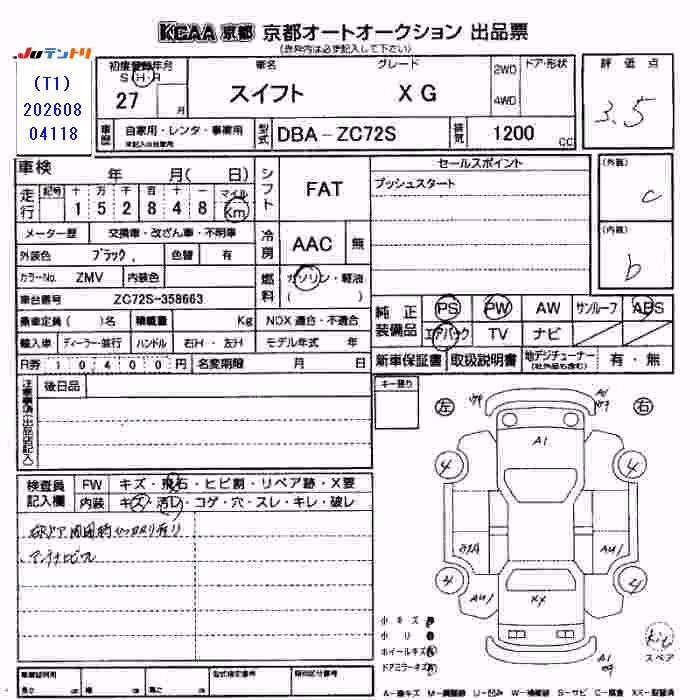 KCAA 京都 京都オートオークション 出品票
(赤枠内は必ず記入して下さい)
JUテントリ
(T1)
202608
04118
初度登録年月
S・H・R
27 月
車名
スイフト
グレード
XG
2WD
4WD
ドア・形状
評価点
3.5
車歴
自家用・レンタ・事業用
未記入は自家用
型式
DBA-ZC72S
排気
1200 cc
車検 年 月( 日)
シフト
FAT
セールスポイント
プッシュスタート
(外装)
C
(内装)
b
走行
記号 十 万 千 百 十 一 マイル
1 5 2 8 4 8 Km
メーター歴 交換車・改ざん車・不明車
冷房
AAC 無
外装色 ブラック 色替 有
カラーNo. ZMV 内装色
燃料
ガソリン・軽油
( )
車台番号 ZC72S-358663
乗車定員 ( )名 積載量 Kg NOX 適合・不適合
輸入車 ディーラー・並行 ハンドル 右H・左H モデル年式 年
R券 10400円 名変期限 月 日
純正装備品
PS PW AW サンルーフ ABS
エアバック TV ナビ
新車保証書 取扱説明書 地デジチューナー(社外品も含む) 有・無
注意事項(出品店記入)
後日品
キー預り
左 右
検査員記入欄
FW キズ・飛石・ヒビ割・リペア跡・X要
内装 キズ・汚レ・コゲ・穴・スレ・キレ・破レ
アンテナ
A1
4 4
AU1
4 4
AU1
XX
A1
小キズ
小リ
ホイールキズ
ドアミラーキズ
スペア
車輌証明用
長さ cm 幅 cm 高さ cm
型式指定番号
類別区分番号